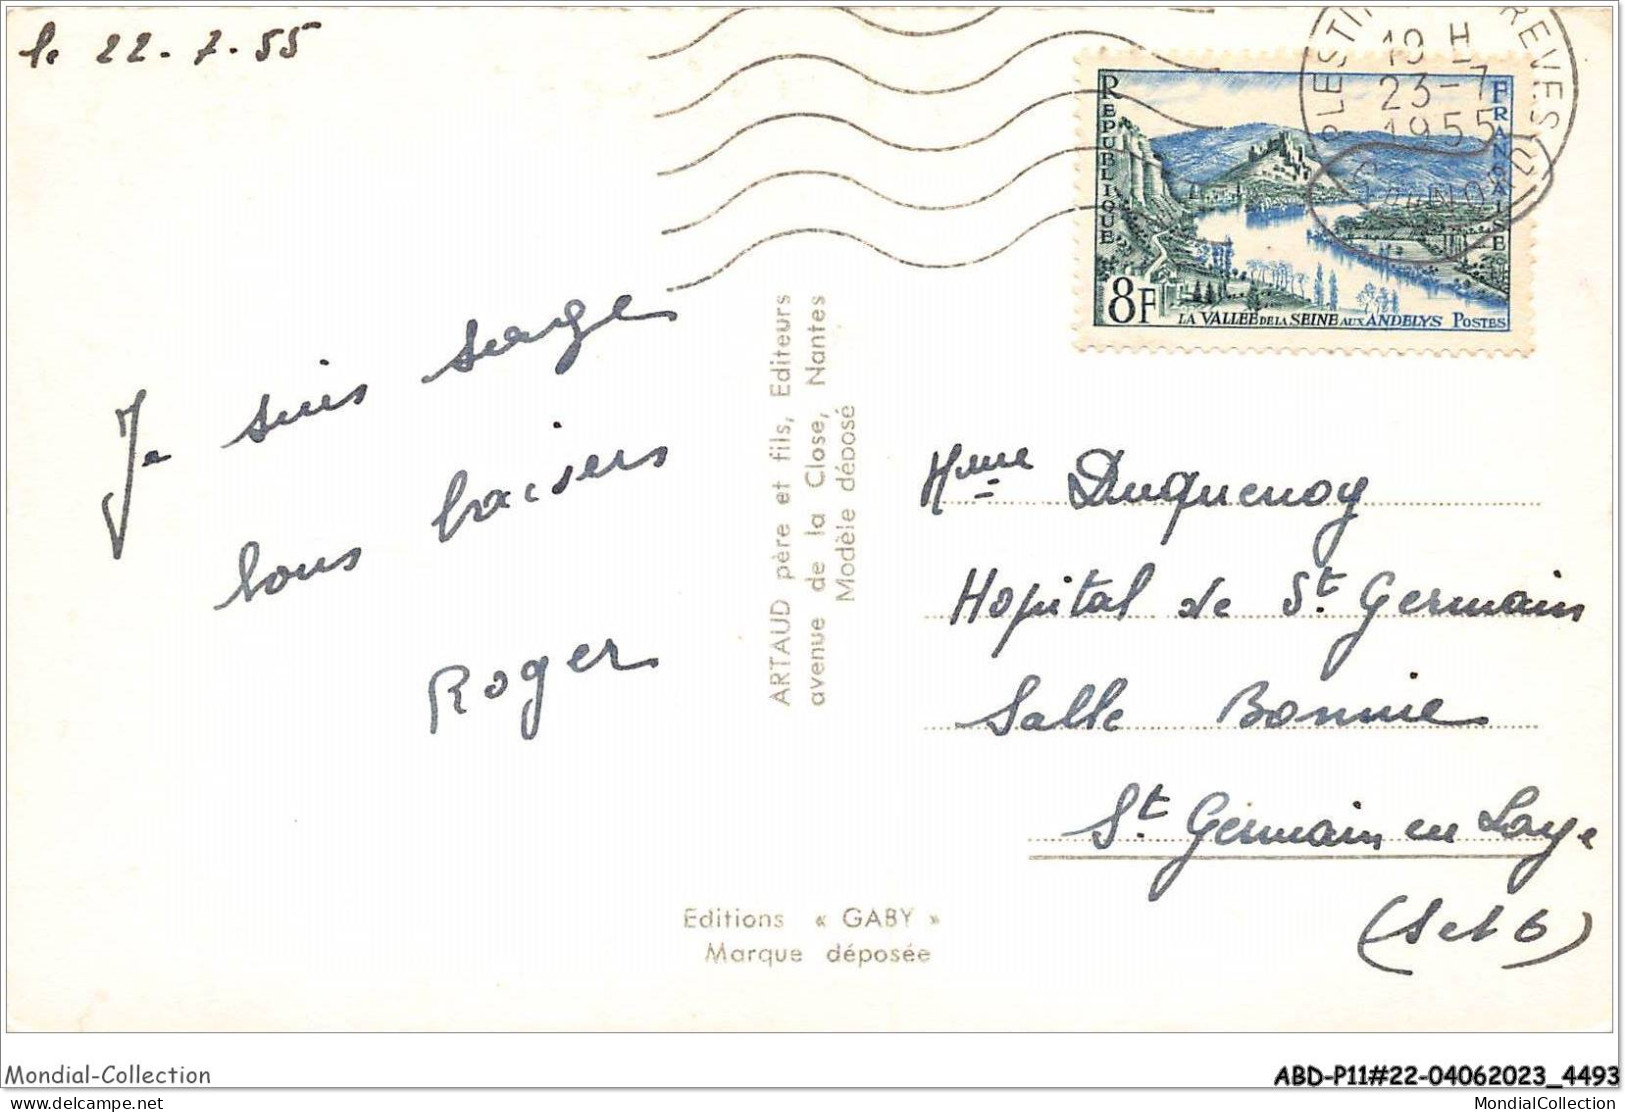 le 22-7-55
Je suis sage
bons baisers
Roger
ARTAUD père et fils, Editeurs
avenue de la Close, Nantes
Modèle déposé
Editions « GABY »
Marque déposée
19 H
23-7
1955
REPUBLIQUE
FRANÇAISE
8F
LA VALLEE DE LA SEINE AUX ANDELYS POSTES
Mme Duquenoy
Hopital de St. Germain
Salle Bonnie
St. Germain en Laye
(S et O)
Mondial-Collection
ABD-P11#22-04062023_4493
mondial-collection.delcampe.net
MondialCollection